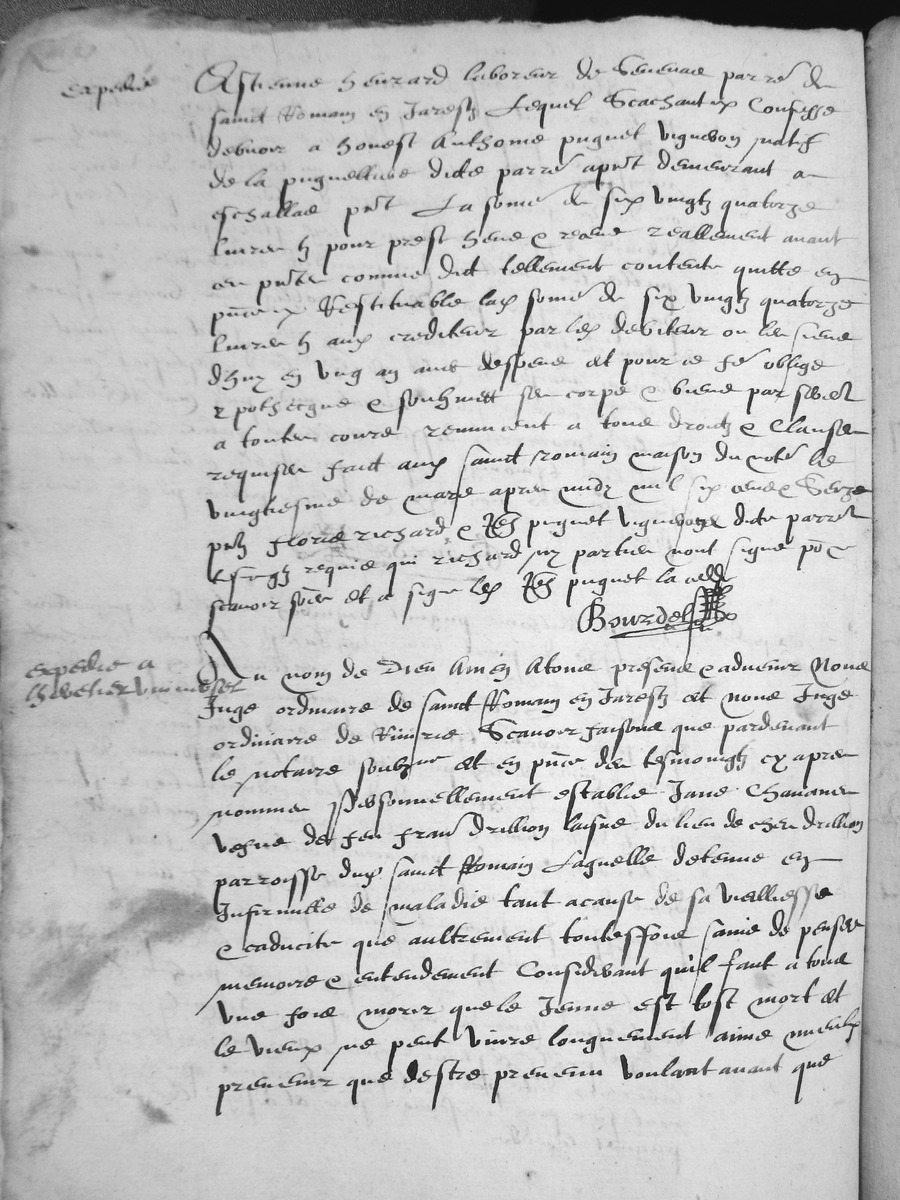 expedie
Estienne heurard laboreur de Senevas parre de
sainct Romain en Jarestz Lequel Scachant ex Confesse
debvoir a honest Anthome puguet vigneron natif
de la puguelliere dicte parre aprnt demeurant a
eschallas prnt La some de six vingtz quatorze
livres tz pour prest heue & receue reallement avant
ces pntes comme dict tellement contente quitte en
pnce Restituable lad some de six vingtz quatorze
livres tz aud crediteur par led debiteur ou les siens
dhuy en ung an avec despens et pour ce fe oblige
ypothecque & soubmett ses corps & biens par
a toutes cours renuncent a tous droictz & Clauses
requises faict aud sainct romain maison du notre le
vingtiesme de mars apres midy mil six cens & Seize
pntz floris richard & puguet vignerons dicte parre
tesmgtz requis qui richard ny parties nont signe po
scavoir soe et a signe led puguet la cedde
Bourdel
expedie a
Au nom de Dieu Amen A tous presens & advenir Nous
Juge ordinaire de sainct Romain en Jarestz et nous Juge
ordinaire de Riverie Scavoir faisons que pardevant
le notaire soubzne et en pnce des tesmoingtz cy apres
nommes Personnellement establie Jane Chavanes
vefve de feu Drillion laisne du lieu de ches drillion
parroisse dud sainct Romain Laquelle detenue en
Infirmitte de maladie tant a cause de sa vielliesse
& caducite que aultrement touteffois saine de pensee
memoire & entendement Considerant quil faut a tous
une fois morir que le Jeune est tost mort et
le vieux ne peut vivre longuement aime mieulx
prevenir que destre prevenu voulant avant que